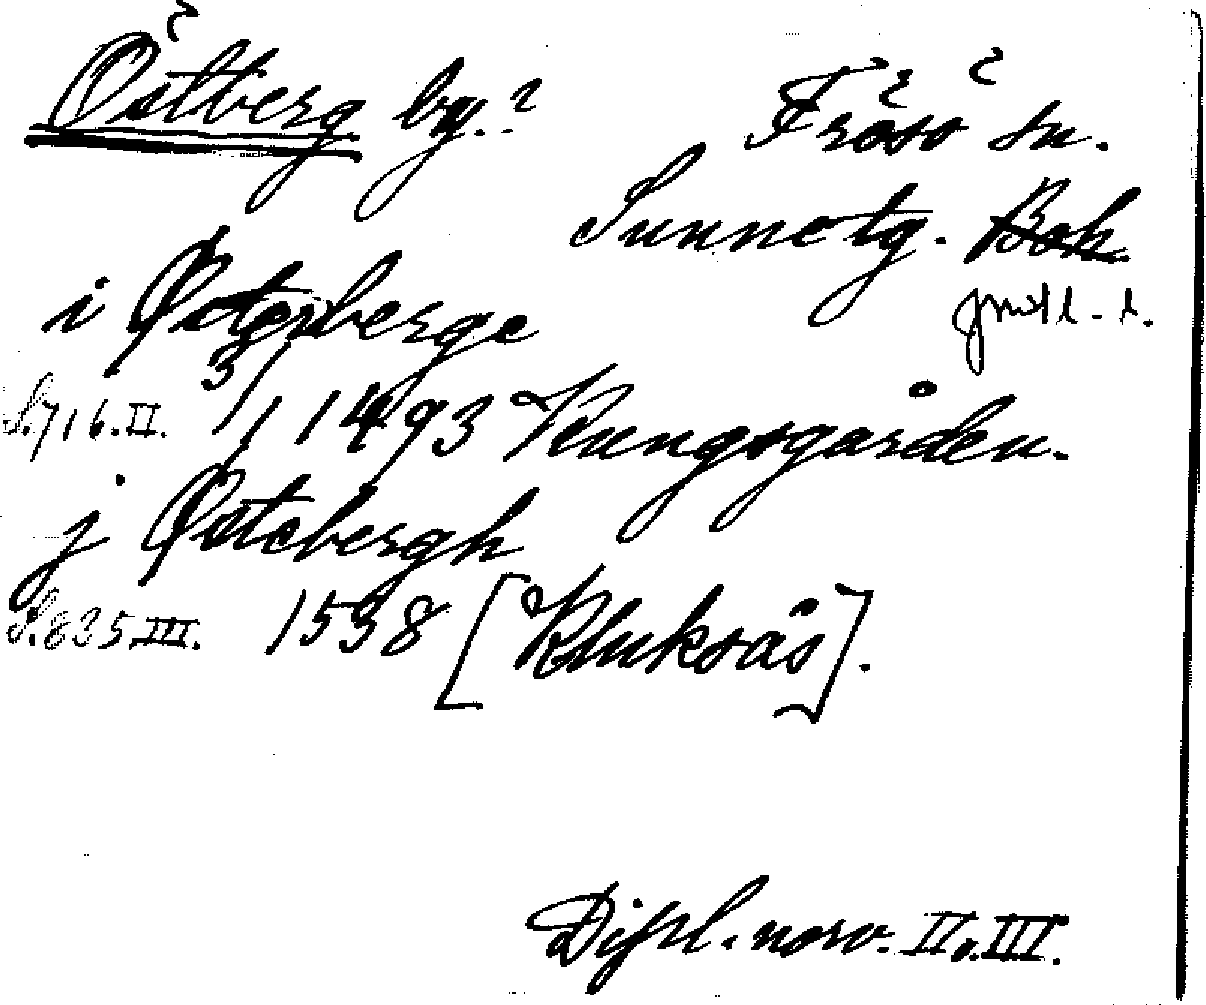 Östberg by.?
Frösö sn.
Sunne tg. Boh
Jmtl. l.
i Østerberge
S. 716. II. 3/1 1493 Kungsgården.
j Østebergh
S. 835 III. 1538 [Kluksås].
Dipl. norv. II o. III.